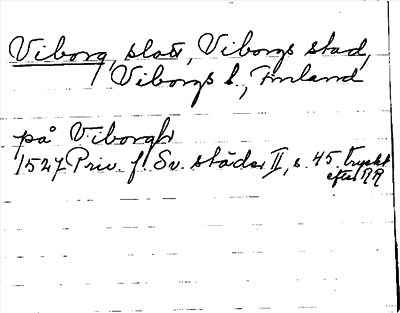 Viborg, slott, Viborgs stad,
Viborgs l., Finland
på Viborgh
1527 Priv. f. Sv. städer II, s. 45. tryckt
efter RR